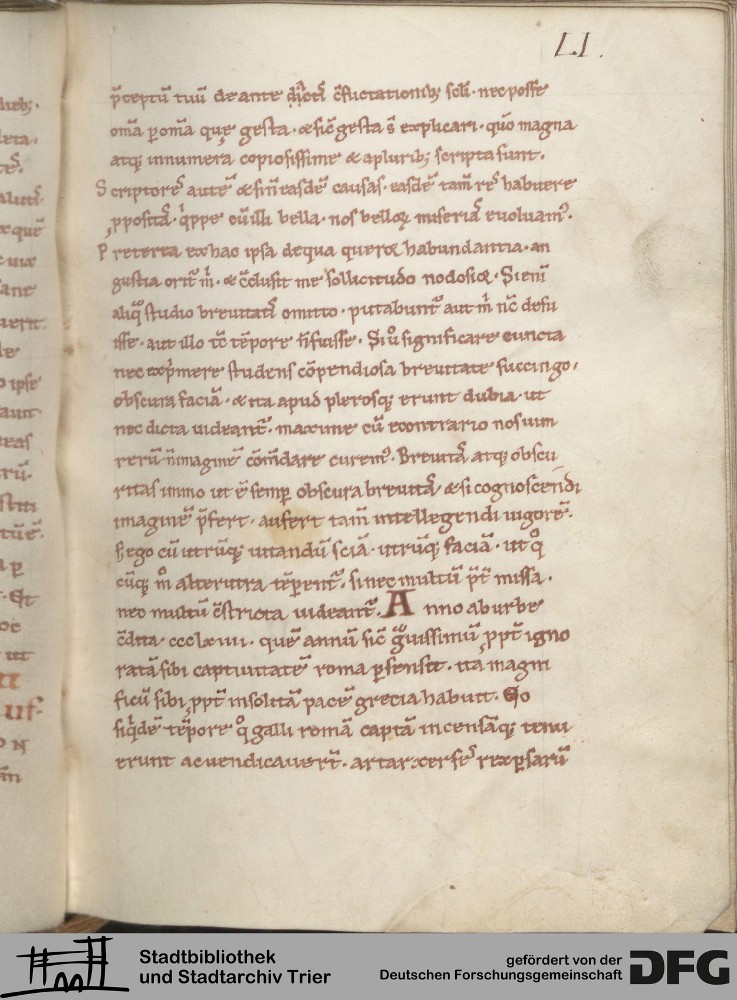 LI.
p̄ceptū tuū de ante dictis c̄flictationib; scli · nec posse
om̄a p om̄a que gesta · & sic̄ gesta s̄ explicari · qūo magna
atq; innumera copiosissime & a plurib; scripta sunt.
Scriptores autē & si n̄ easdē causas · easdē tam̄ res habuere
ppositas · q̇ppe cū illi bella · nos belloꝝ miseriā euoluam⁹.
Preterea ex hac ipsa de qua queror habundantia · an
gustia orit̄ m̄ · & c̄clusit me sollicitudo nodosior · Si eni
aliq̄ studio breuitatis omitto · putabunt̄ aut m̄ nc̄ defu
isse · aut illo tc̄ tēpore n̄ fuisse · Si u͛o significare cuncta
nec exp̄mere studens cōpendiosa breuitate succingo ·
obscura faciā · & ita apud plerosq; erunt dubia · ut
nec dicta uideant̄ · maxime cū econtrario nos uim
rerū n̄ imaginē cōm̄dare curem⁹ · Breuitas atq; obscu
ritas immo ut ē semp obscura breuitas & si cognoscendi
imaginē p̄fert · aufert tam̄ intellegendi uigorē ·
S; ego cū utrūq; uitandū sciā · utrūq; faciā · ut q̊
cūq; m̊ alterutra tēperent̄ · si nec multū p̄t̄ missa ·
nec multū c̄stricta uideant̄ · Anno ab urbe
c̄dita · ccclxiiii · que annū sic̄ g̊uissimū ppt̄ igno
ratā sibi captiuitatē roma psensit · ita magni
ficū sibi ppt̄ insolitā pacē grecia habuit · Eo
siq̇dē tēpore q̊ galli romā captā incensāq; tenu
erunt ac uendicauert̄ · artarxerses rex psarū
Stadtbibliothek
und Stadtarchiv Trier
gefördert von der
Deutschen Forschungsgemeinschaft
DFG